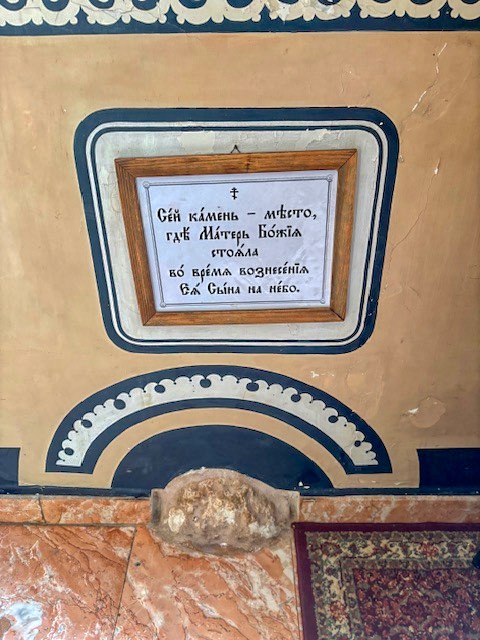 Се́й ка́мень – мѣ́сто,
гдѣ̀ Ма́терь Бо́жїѧ
стоѧ́ла
во́ вре́мѧ вознесе́нїѧ
Еѧ̀ Сы́на на не́бо.